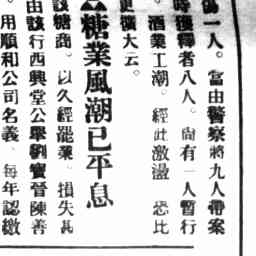 傷一人。當由警察將九人帶案
時後釋者八人。尙有一人暫行
。酒業工潮。經此激盪 恐比
更擴大云。
糖業風潮已平息
該糖商。以久經罷業。損失甚
由該行西興堂公舉劉寶晉陳善
。用順和公司名義。每年認繳